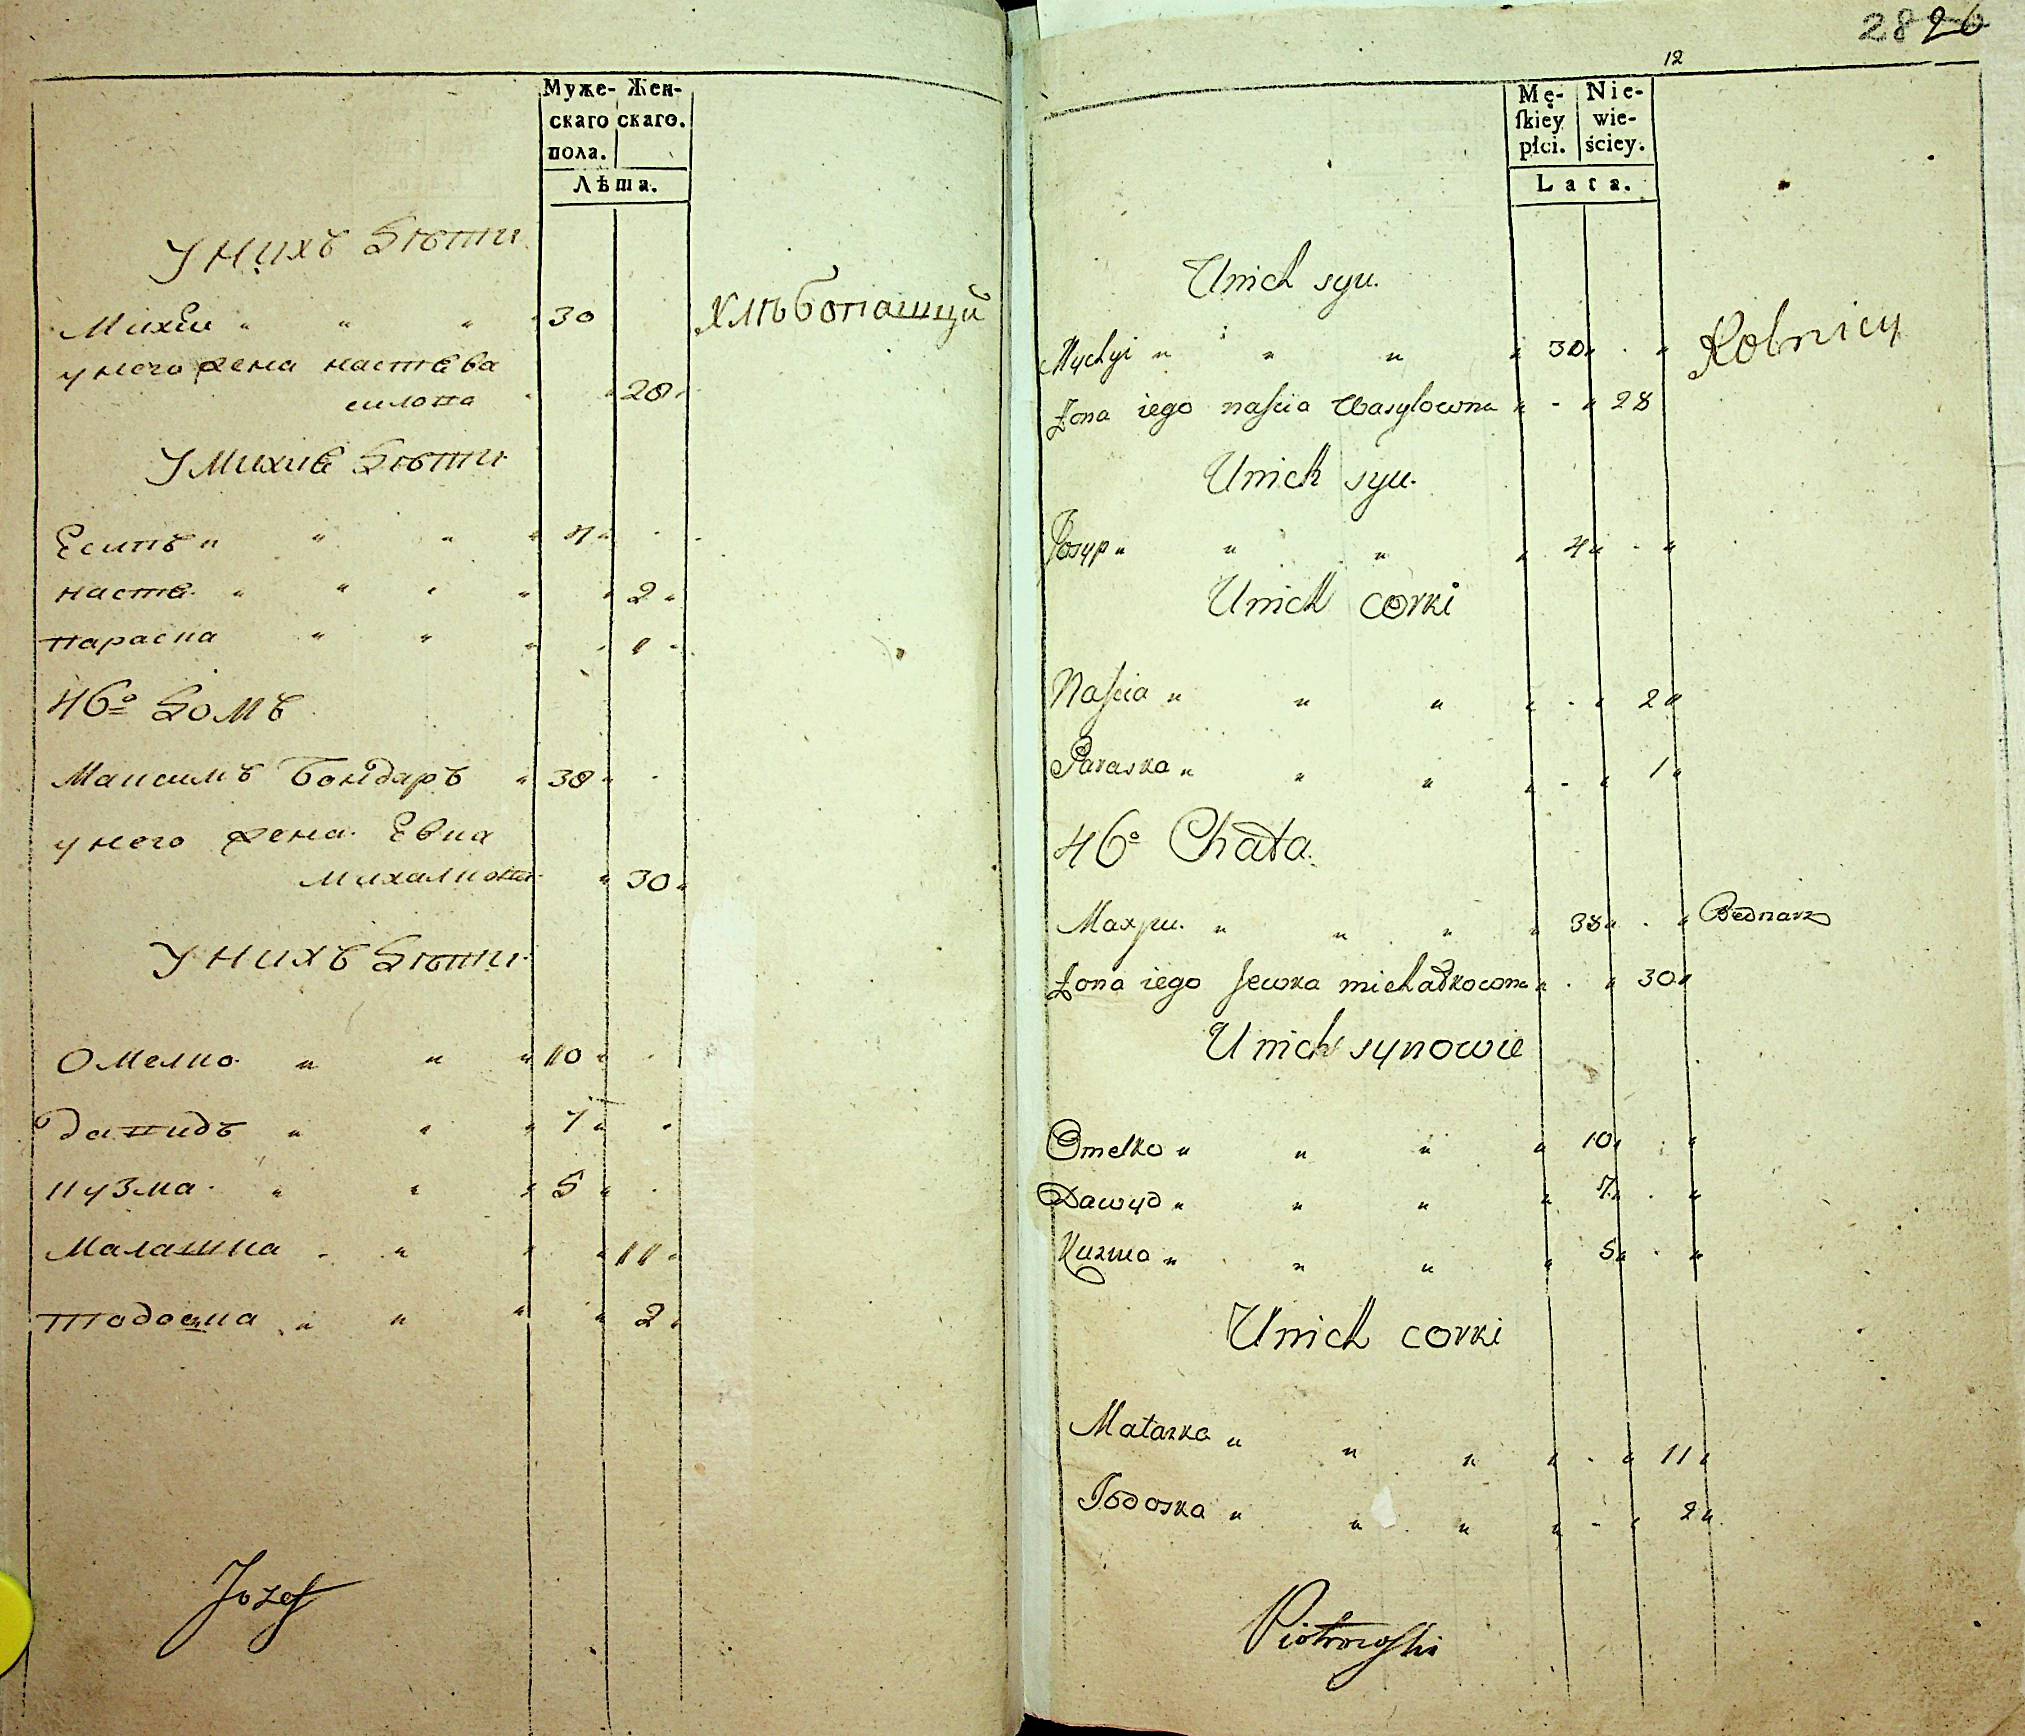 Муже- Жен-
скаго скаго.
пола.
Лѣта.
У нихъ дѣти
Михей " " " " 30 Хлѣбопашцы
у него жена настя ва
силова " " 28 "
У Михия дѣти
Есипъ " " " " 4 "
настя " " " " " 2 "
параска " " " 1 "
46º домъ
Максимъ Бондаръ " 38 "
у него жена Евка
михалкова " 30 "
У нихъ дѣти
Омелко " " " 10 "
давидъ " " " 7 "
кузма " " " 5 "
Малашка " " " 11 "
тодоска " " " " 2 "
Jozef
28 26
12
Mę- Nie-
ſkiey wie-
płci. ściey.
Lata.
Unich syn.
Mychyi " " " " 30 " " Rolnicy
Żona iego naſcia Wasylowna " - " 28
Unich syn.
Josyp " " " " 4 " - "
Unich corki
Naſcia " " " " - " 2 "
Paraska " " " " - " 1 "
46º Chata.
Maxym. " " " " 38 " " Bednarz
Żona iego Jewka michałkowna " " 30 "
Unich synowie
Omelko " " " " 10 " "
Dawyd " " " " 7 " "
Kuzma " " " " 5 " "
Unich corki
Małaszka " " " " - " 11 "
Todoska " " " " - " 2 "
Piotrowſki